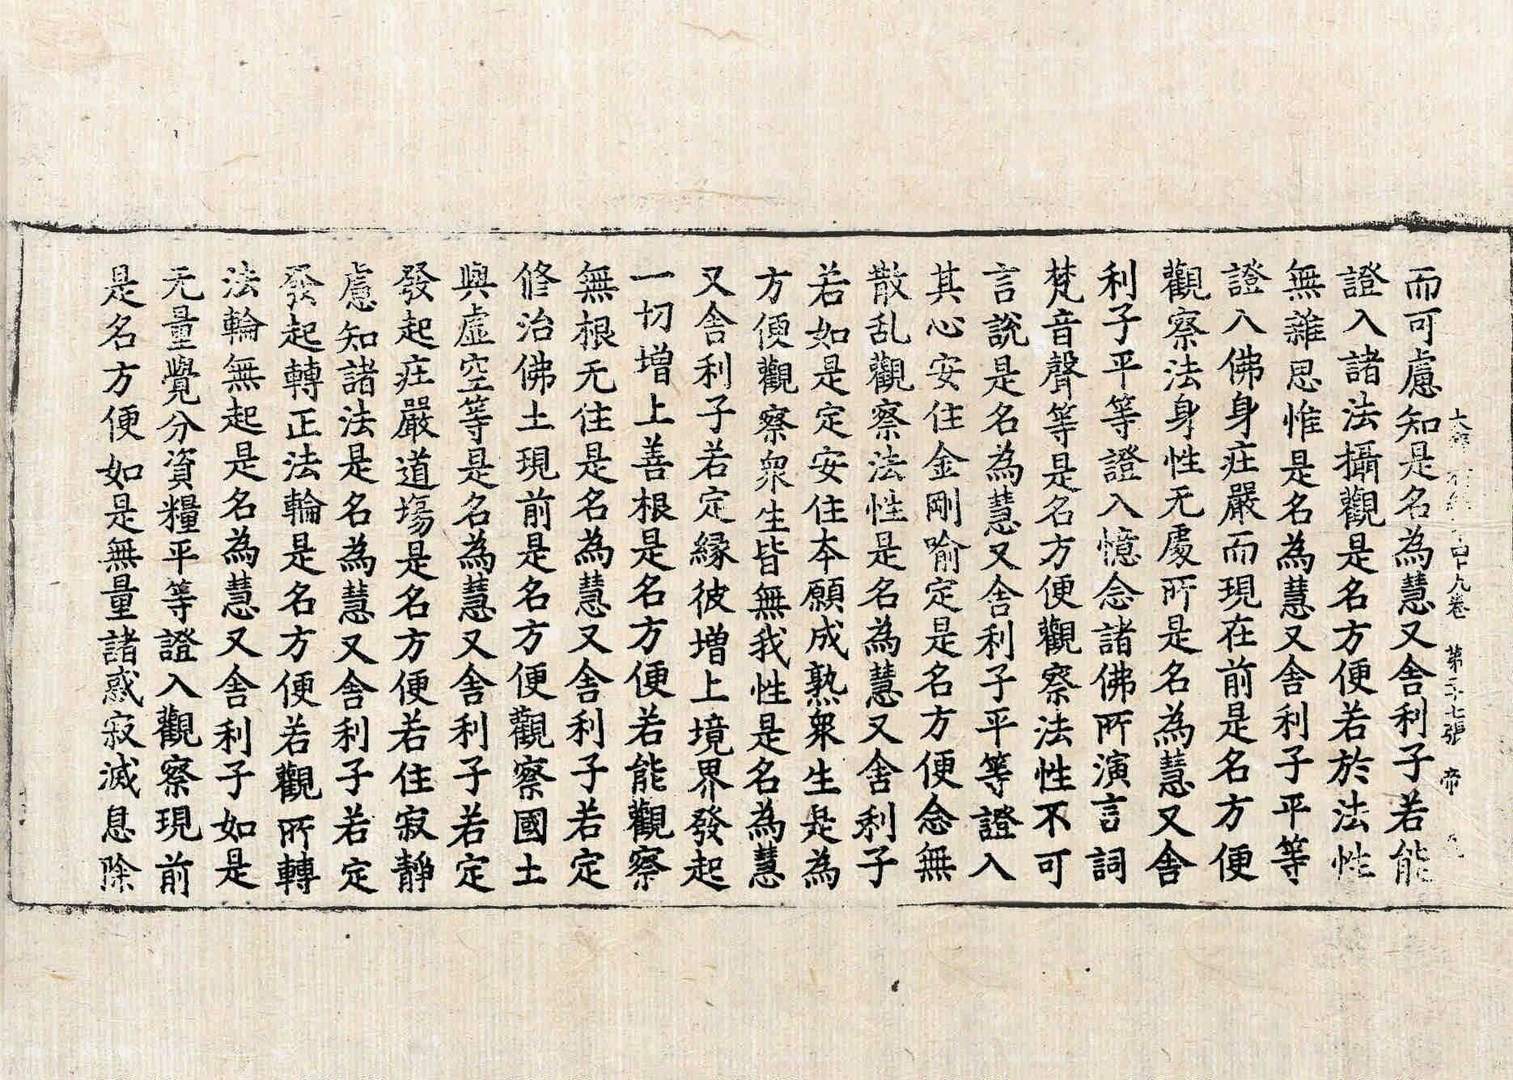 而可慮知是名為慧又舍利子若能
證入諸法攝觀是名方便若於法性
無雜思惟是名為慧又舍利子平等
證入佛身庄嚴而現在前是名方便
觀察法身性无處所是名為慧又舍
利子平等證入憶念諸佛所演言詞
梵音聲等是名方便觀察法性不可
言說是名為慧又舍利子平等證入
其心安住金剛喻定是名方便念無
散乱觀察法性是名為慧又舍利子
若如是定安住本願成熟衆生是為
方便觀察衆生皆無我性是名為慧
又舍利子若定緣彼增上境界發起
一切增上善根是名方便若能觀察
無根无住是名為慧又舍利子若定
修治佛土現前是名方便觀察國土
與虛空等是名為慧又舍利子若定
發起庄嚴道場是名方便若住寂靜
慮知諸法是名為慧又舍利子若定
發起轉正法輪是名方便若觀所轉
法輪無起是名為慧又舍利子如是
无量覺分資糧平等證入觀察現前
是名方便如是無量諸惑寂滅息除
大 四十九卷 第二十七張 帝